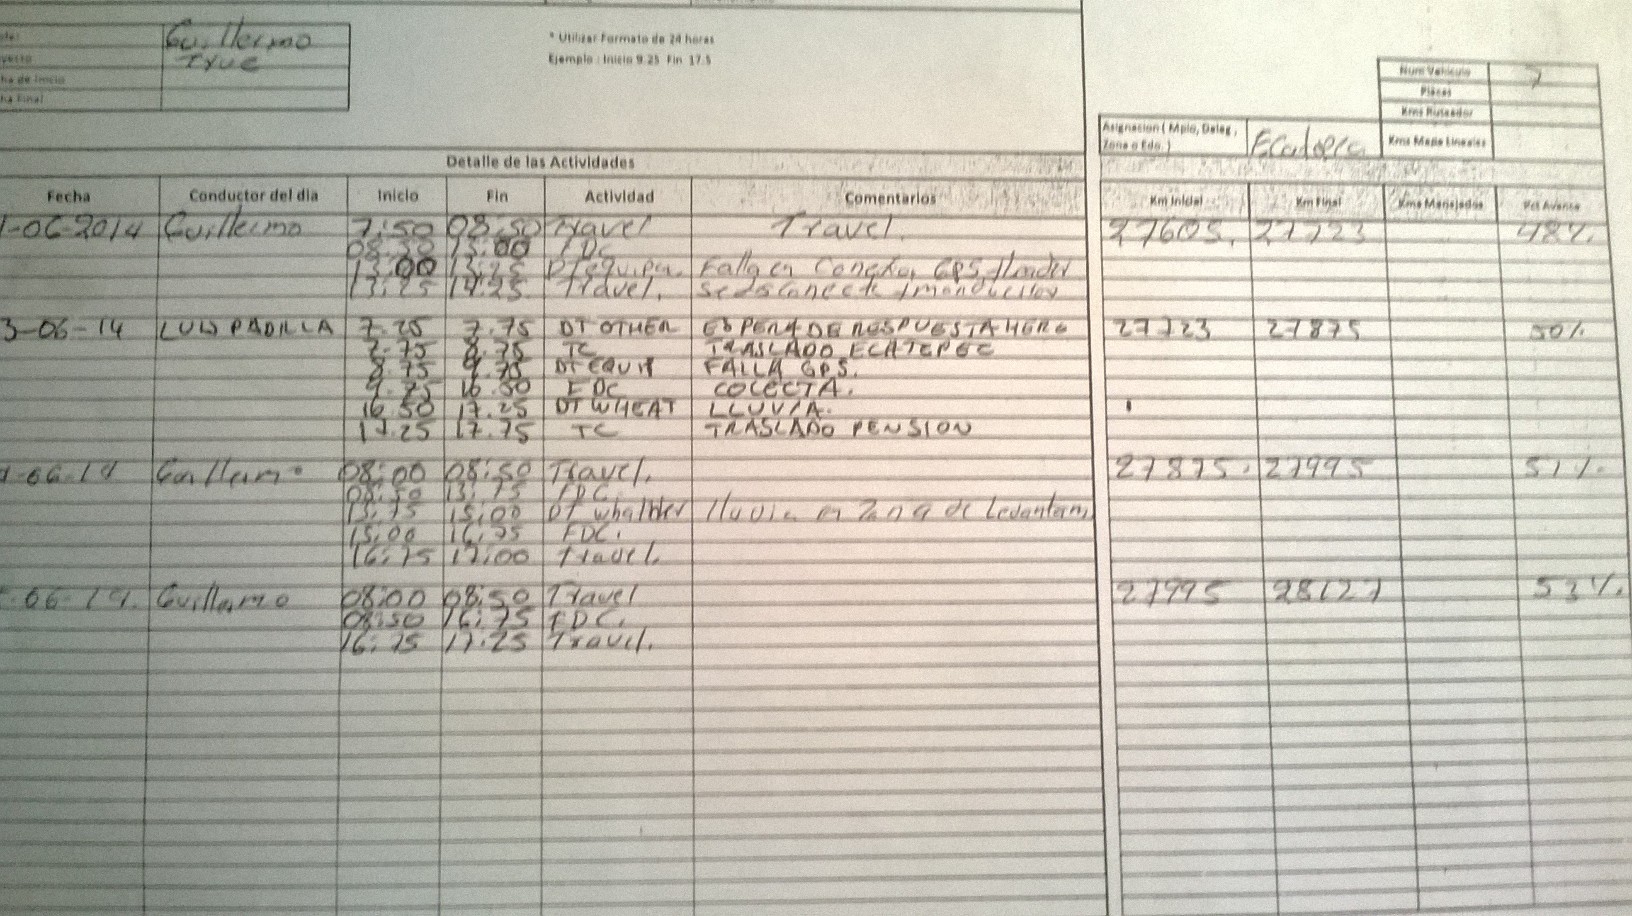 Guillermo
TYUC
* Utilizar Formato de 24 horas
Ejemplo : Inicio 9.25 Fin 17.5
Num Vehiculo 7
Placas
Kms Ruteador
Kms Mapa Lineales
Asignacion ( Mpio, Deleg,
Zona o Edo. )
Detalle de las Actividades
Fecha Conductor del dia Inicio Fin Actividad Comentarios Km Inicial Km Final Kms Manejados Pct Avance
-06-2014 Guillermo 7:50 08:50 Travel Travel. 27605. 27723 48%.
08:50 13:00 FDC
13:00 13:25 Falla en GPS
13:25 14:25 Travel.
3-06-14 LUIS PADILLA 7.25 7.75 DT OTHER ESPERA DE RESPUESTA HERE 27723 27875 50%
7.75 8.75 TC TRASLADO ECATEPEC
8.75 9.75 DT EQUIP FALLA GPS.
9.75 16.50 FDC COLECTA.
16.50 17.25 DT WHEAT LLUVIA.
17.25 17.75 TC TRASLADO PENSION
-06-14 Guillermo 08:00 08:50 Travel. 27875. 27995 51%.
08:50 13:75 FDC
13:75 15:00 DT lluvia en Zona de Levantam
15:00 16:75 FDC.
16:75 17:00 Travel.
-06-14. Guillermo 08:00 08:50 Travel 27995 28127 53%.
08:50 16:75 FDC.
16:75 17:25 Travel.